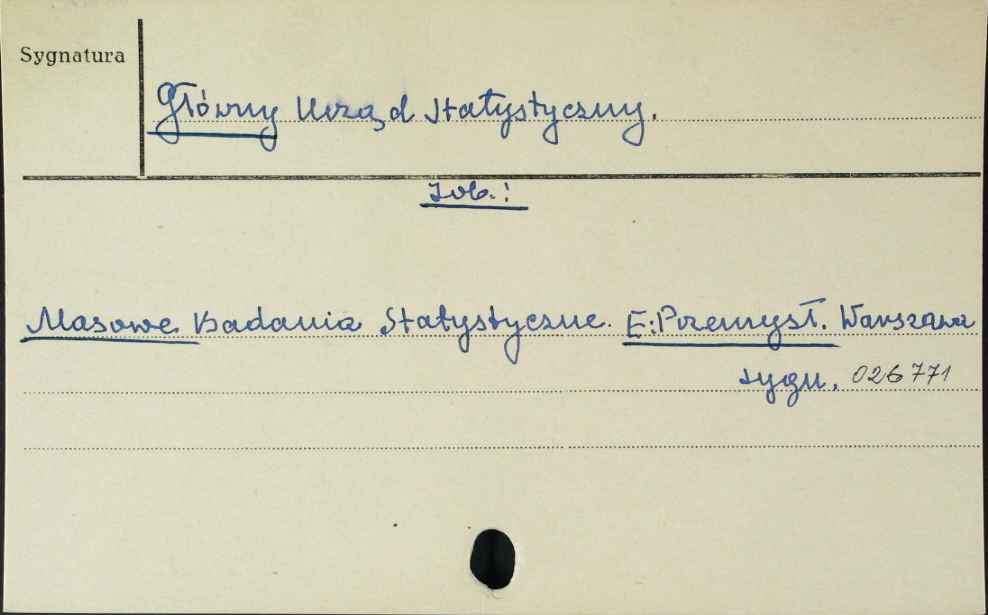 Sygnatura
Główny Urząd Statystyczny.
Zob.:
Masowe Badania Statystyczne. E: Przemysł. Warszawa
sygn. 026771